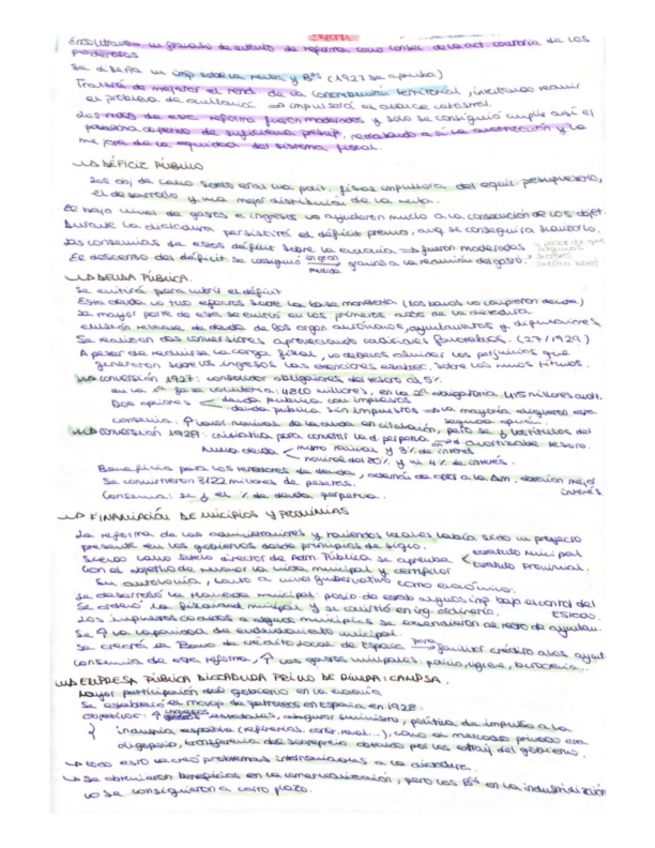 Encontramos un fracaso de intento de reforma como consec de la act contraria de los
poderosos
Se diseña un imp sobre la renta y Bºs (1927 se aprueba)
Tratará de mejorar el rend. de la contribución territorial, incitando reducir
el problema de ocultación ⇒ impulsará el avance catastral.
Los rdos de esta reforma fueron moderados y solo se consiguió cumplir así el
objetivo de suficiencia presup, retrasando así la modernización y la
mejora de la equidad del sistema fiscal.
↳ DÉFICIT PÚBLICO
Los obj de Calvo Sotelo eran una polít. fiscal impulsora del equil. presupuestario,
el desarrollo y una mejor distribución de la renta.
El bajo nivel de gastos e ingresos no ayudaron mucho a la consecución de los objet.
Durante la dictadura persistirá el déficit previo, aunq se conseguirá suavizarlo.
Las consecuencias de estos déficit sobre la economía ⇒ fueron moderados
El descenso del déficit se consiguió en gran medida gracias a la reducción del gasto.
↳ DEUDA PÚBLICA.
Se emitirá para cubrir el déficit
Esta deuda no tuvo efectos sobre la base monetaria (los bancos no compraron deuda)
La mayor parte de esta se emitió en los primeros años de la dictadura
emisión de deuda de los organ. autónomos, ayuntamientos y diputaciones
Se realizan dos conversiones aprovechando condiciones favorables. (27/1928)
A pesar de reducirse la carga fiscal, no debemos olvidar los perjuicios que
generaron sobre los ingresos las exenciones estabec. sobre los nuevos títulos.
↳ Conversión 1927: consolidar obligaciones del tesoro al 5%
en la 1ª fase voluntaria: 4820 millones, en la 2ª obligatoria 415 millones
Dos opciones < deuda pública con impuestos
deuda pública sin impuestos → la mayoría eligieron esta
segunda opción.
Consecuencia: ↑ valor nominal de la deuda en circulación, pero se ↓ intereses del
↳ Conversión 1928: iniciativa para convertir la d. perpetua en d. amortizable tesoro.
Nueva deuda < mismo nominal y 3% de interés
nominal del 80% y un 4% de interés.
Beneficiosa para los tenedores de deuda, además de para la Adm, obtenían mejor
interés
Se convirtieron 3122 millones de pesetas.
Consecuencia: se ↓ el % de deuda perpetua.
↳ FINANCIACIÓN DE MUNICIPIOS Y PROVINCIAS
La reforma de las administraciones y haciendas locales había sido un proyecto
presente en los gobiernos desde principios de siglo.
Siendo Calvo Sotelo director de Adm. Pública se aprueba < estatuto municipal
estatuto provincial.
Con el objetivo de la vida municipal y
su autonomía, tanto a nivel gubernativo como económico.
Se desarrolló la Hacienda municipal: posib de estab algunos imp bajo el control del
Estado.
Se ordenó la fiscalidad municipal y se convirtió en ing. ordinario.
Los impuestos cedidos a algunos municipios se extendieron al resto de ayuntam.
Se ↑ la capacidad de endeudamiento municipal.
Se creará el Banco de crédito local de España para facilitar crédito a los ayunt
Consecuencia de esta reforma, ↑ los gastos municipales: policía, higiene, burocracia...
↳ EMPRESA PÚBLICA DICTADURA PRIMO DE RIVERA: CAMPSA.
Mayor participación del gobierno en la economía
Se estableció el monop. de petróleos en España en 1928.
Objetivos: ↑ ingresos estatales, asegurar suministro, política de impulso a la
industria española (refinerías, constr. naval...), como el mercado privado era
oligopolio, transferencia del sobreprecio obtenido por los extranj al gobierno.
↳ todo esto creó problemas internacionales a la dictadura.
↳ Se obtuvieron beneficios en la comercialización, pero los Bºs en la industrialización
no se consiguieron a corto plazo.